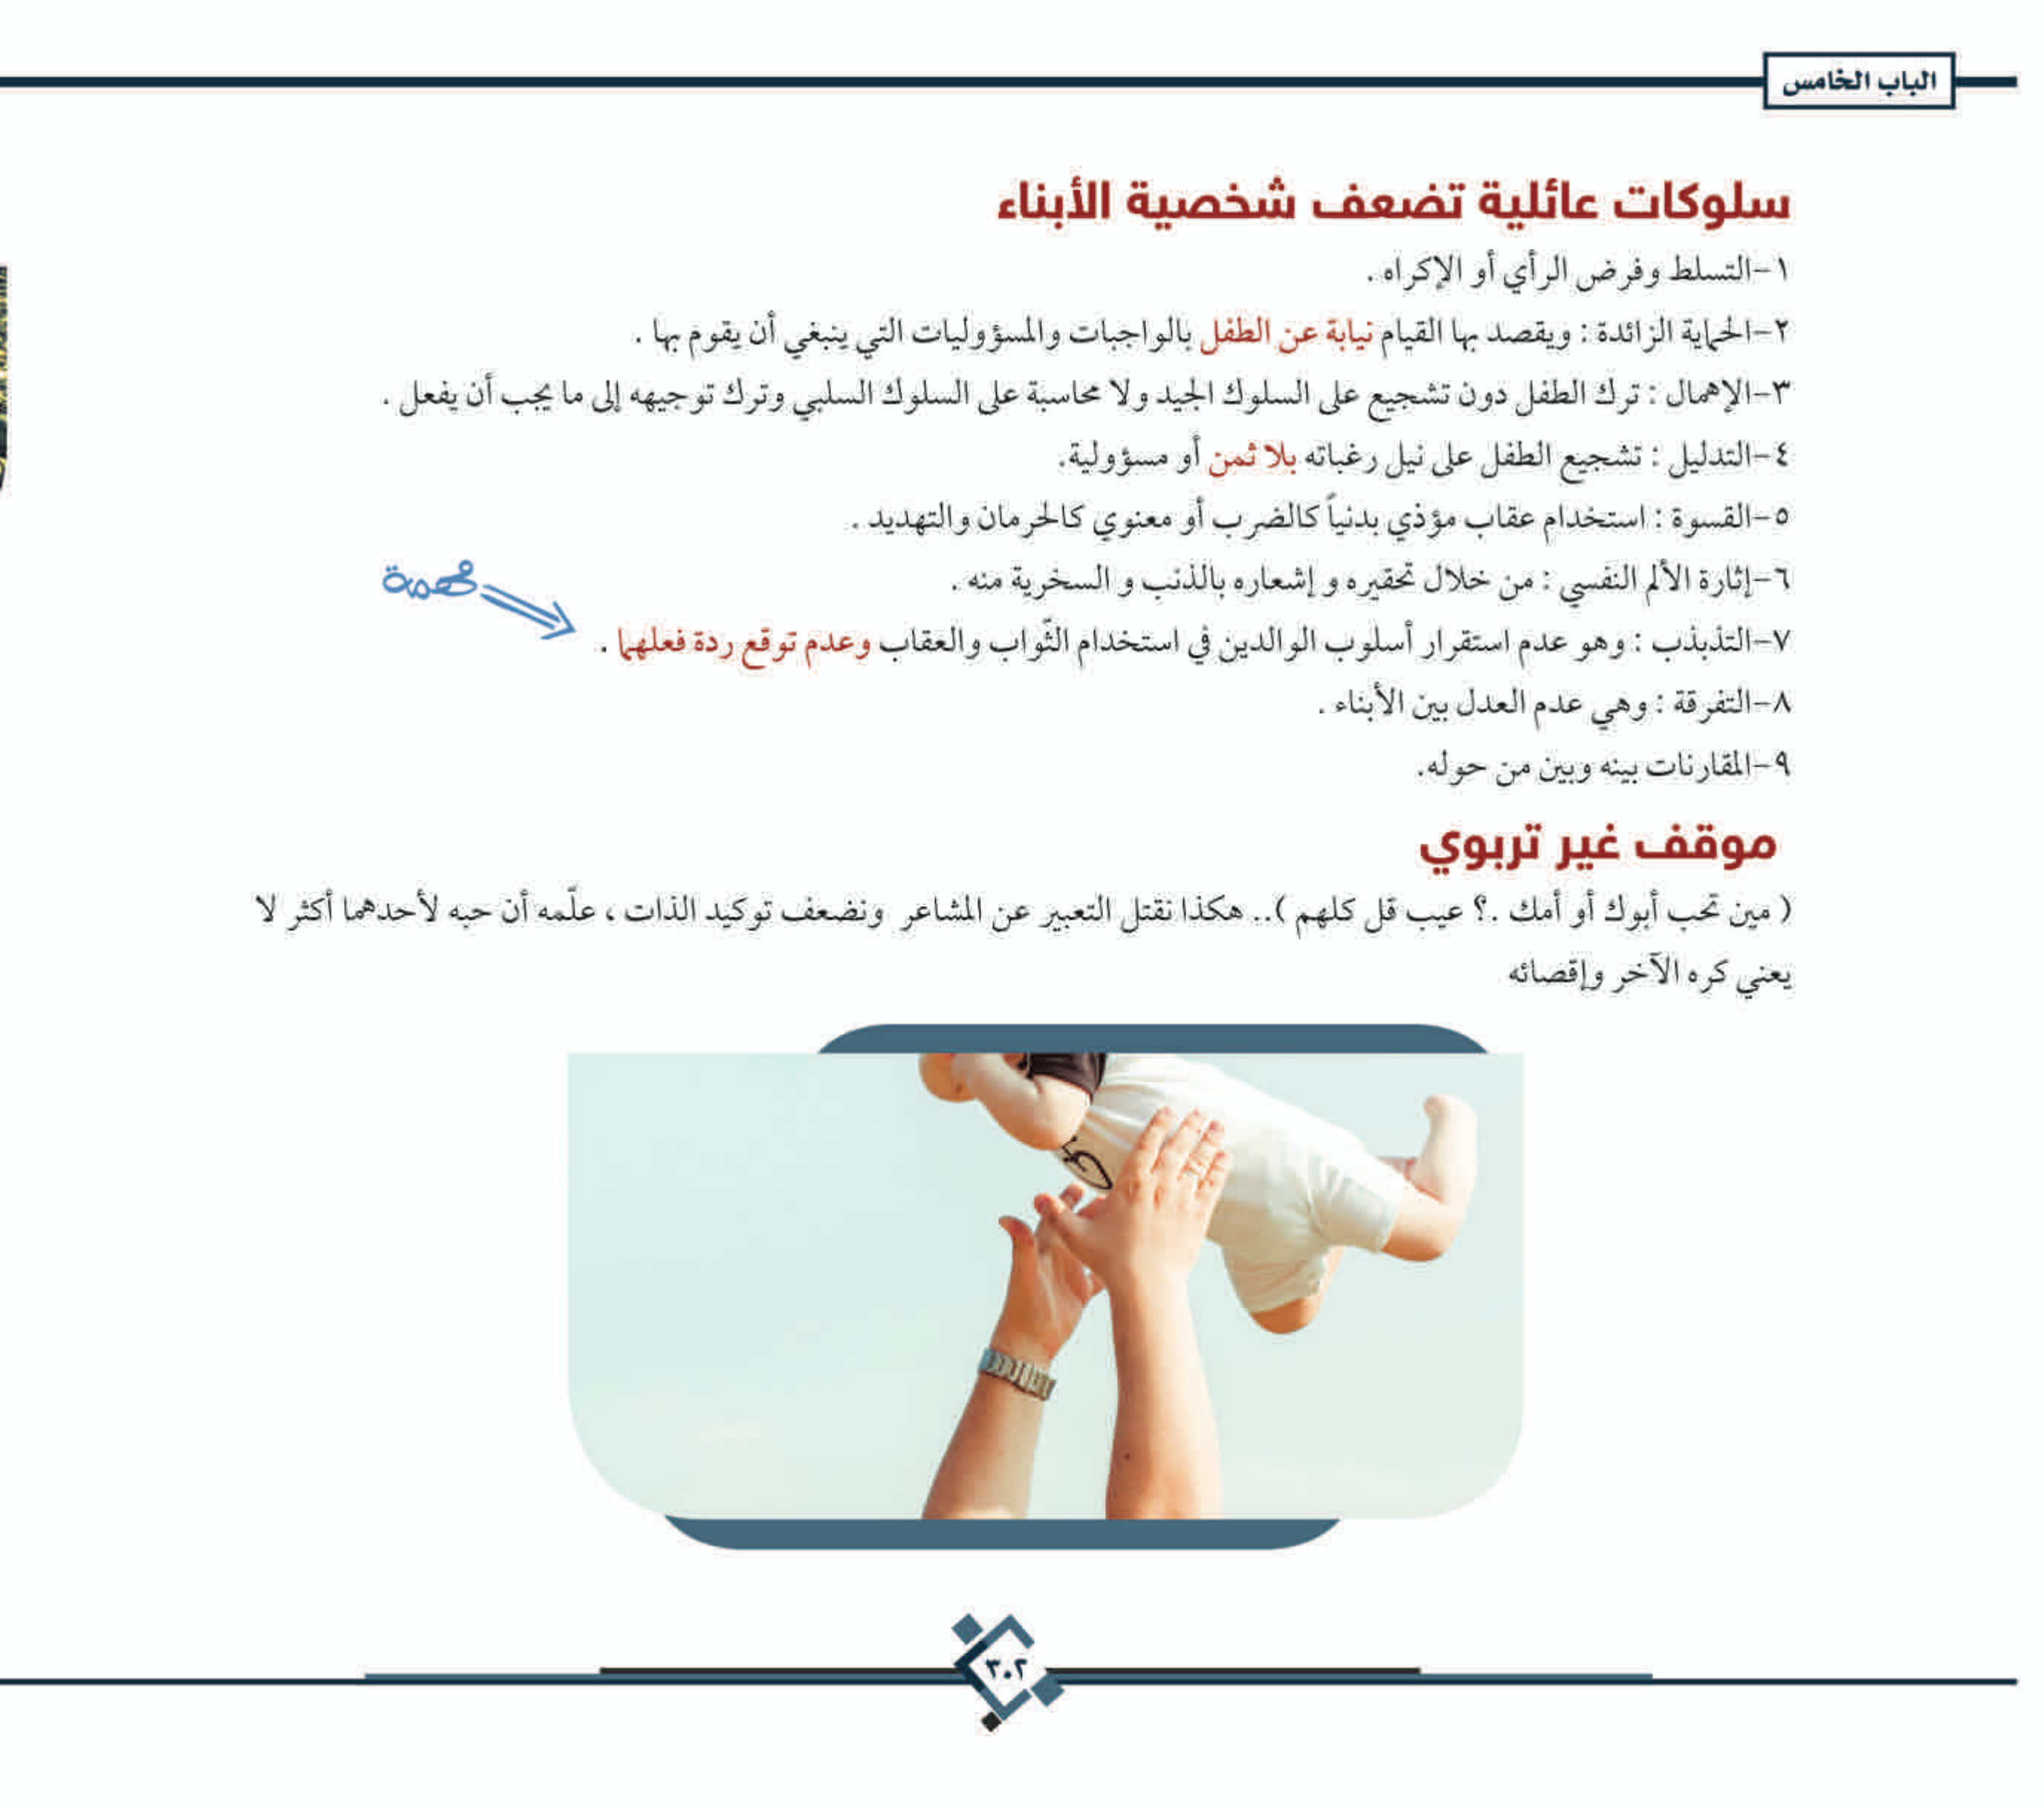 الباب الخامس
سلوكات عائلية تضعف شخصية الأبناء
١-التسلط وفرض الرأي أو الإكراه .
٢-الحماية الزائدة : ويقصد بها القيام نيابة عن الطفل بالواجبات والمسؤوليات التي ينبغي أن يقوم بها .
٣-الإهمال : ترك الطفل دون تشجيع على السلوك الجيد ولا محاسبة على السلوك السلبي وترك توجيهه إلى ما يجب أن يفعل .
٤-التدليل : تشجيع الطفل على نيل رغباته بلا ثمن أو مسؤولية.
٥-القسوة : استخدام عقاب مؤذي بدنياً كالضرب أو معنوي كالحرمان والتهديد .
٦-إثارة الألم النفسي : من خلال تحقيره و إشعاره بالذنب و السخرية منه .
مهمة
٧-التذبذب : وهو عدم استقرار أسلوب الوالدين في استخدام الثّواب والعقاب وعدم توقع ردة فعلهما .
٨-التفرقة : وهي عدم العدل بين الأبناء .
٩-المقارنات بينه وبين من حوله.
موقف غير تربوي
( مين تحب أبوك أو أمك .؟ عيب قل كلهم ).. هكذا نقتل التعبير عن المشاعر ونضعف توكيد الذات ، علّمه أن حبه لأحدهما أكثر لا
يعني كره الآخر وإقصائه
٣٠٢